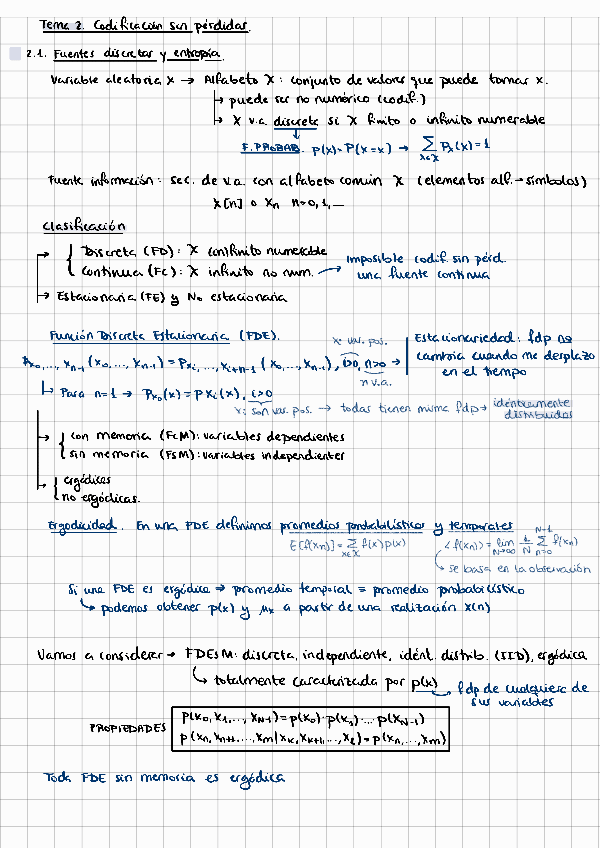 Tema 2. Codificación sin pérdidas.
2.1. Fuentes discretas y entropía.
Variable aleatoria x → Alfabeto X: conjunto de valores que puede tomar x.
↳ puede ser no numérico (codif.)
↳ X v.a. discreta si X finito o infinito numerable
F. PROBAB. p(x) = P(X=x) → ∑x∈X Px(x) = 1
Fuente información: sec. de v.a. con alfabeto común X (elementos alf. → símbolos)
X[n] o Xn n=0,1,...
Clasificación
→ { Discreta (FD): X (in)finito numerable
Continua (FC): X infinito no num. → imposible codif. sin pérd. una fuente continua
→ Estacionaria (FE) y No estacionaria
Función Discreta Estacionaria (FDE).
x: var. pos.
Estacionariedad: fdp no cambia cuando me desplazo en el tiempo
Px0,...,xn-1 (x0,...,xn-1) = Pxi,...,xi+n-1 (x0,...,xn-1), i>0, n>0 →
n v.a.
↳ Para n=1 → Px0(x) = Pxi(x), i>0
x: son var. pos. → todas tienen misma fdp → idénticamente distribuidas
→ { con memoria (FcM): variables dependientes
sin memoria (FSM): variables independientes
→ { ergódicas
no ergódicas.
Ergodicidad. En una FDE definimos promedios probabilísticos y temporales
E[f(xn)] = ∑x∈X f(x)p(x)
<f(xn)> = lim N→∞ 1/N ∑n=0 N-1 f(xn)
↳ se basa en la observación
Si una FDE es ergódica ⇒ promedio temporal = promedio probabilístico
↳ podemos obtener p(x) y μx a partir de una realización x(n)
Vamos a considerar → FDESM: discreta, independiente, idént. distrib. (IID), ergódica
↳ totalmente caracterizada por p(x)
↳ fdp de cualquiera de sus variables
PROPIEDADES
p(x0, x1,..., xN-1) = p(x0)·p(x1)·...p(xN-1)
p(xn, xn+1,..., xm | xk, xk+1,..., xl) = p(xn,..., xm)
Toda FDE sin memoria es ergódica